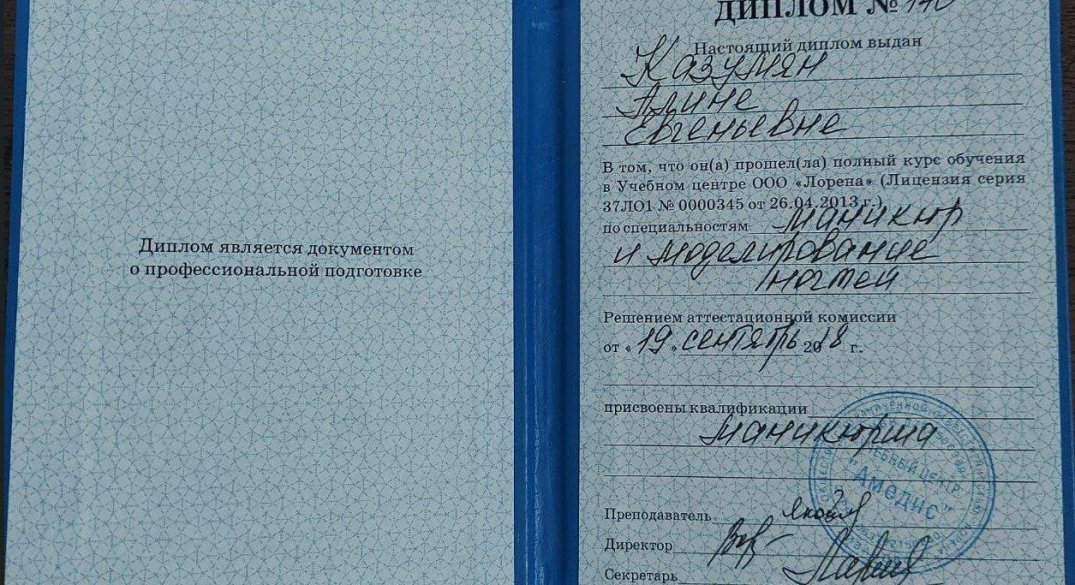 Диплом является документом
о профессиональной подготовке
ДИПЛОМ № 170
Настоящий диплом выдан
Казумян
Алине
Евгеньевне
В том, что он(а) прошел(ла) полный курс обучения
в Учебном центре ООО «Лорена» (Лицензия серия
37ЛО1 № 0000345 от 26.04.2013 г.)
по специальностям маникюр
и моделирование
ногтей
Решением аттестационной комиссии
от «19» сентябрь 2018 г.
присвоены квалификации
маникюрша
УЧЕБНЫЙ ЦЕНТР
"Амедис"
Преподаватель
Директор
Секретарь